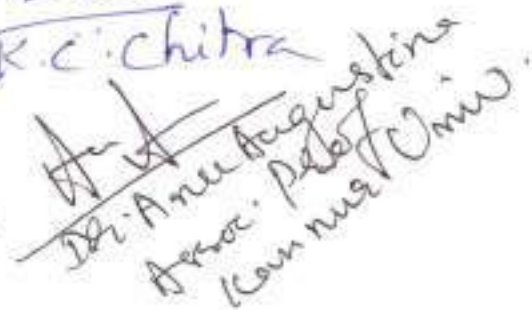 K.C. Chitra
Dr. Anu Augustine
Assoc. Prof
Kannur Univ.